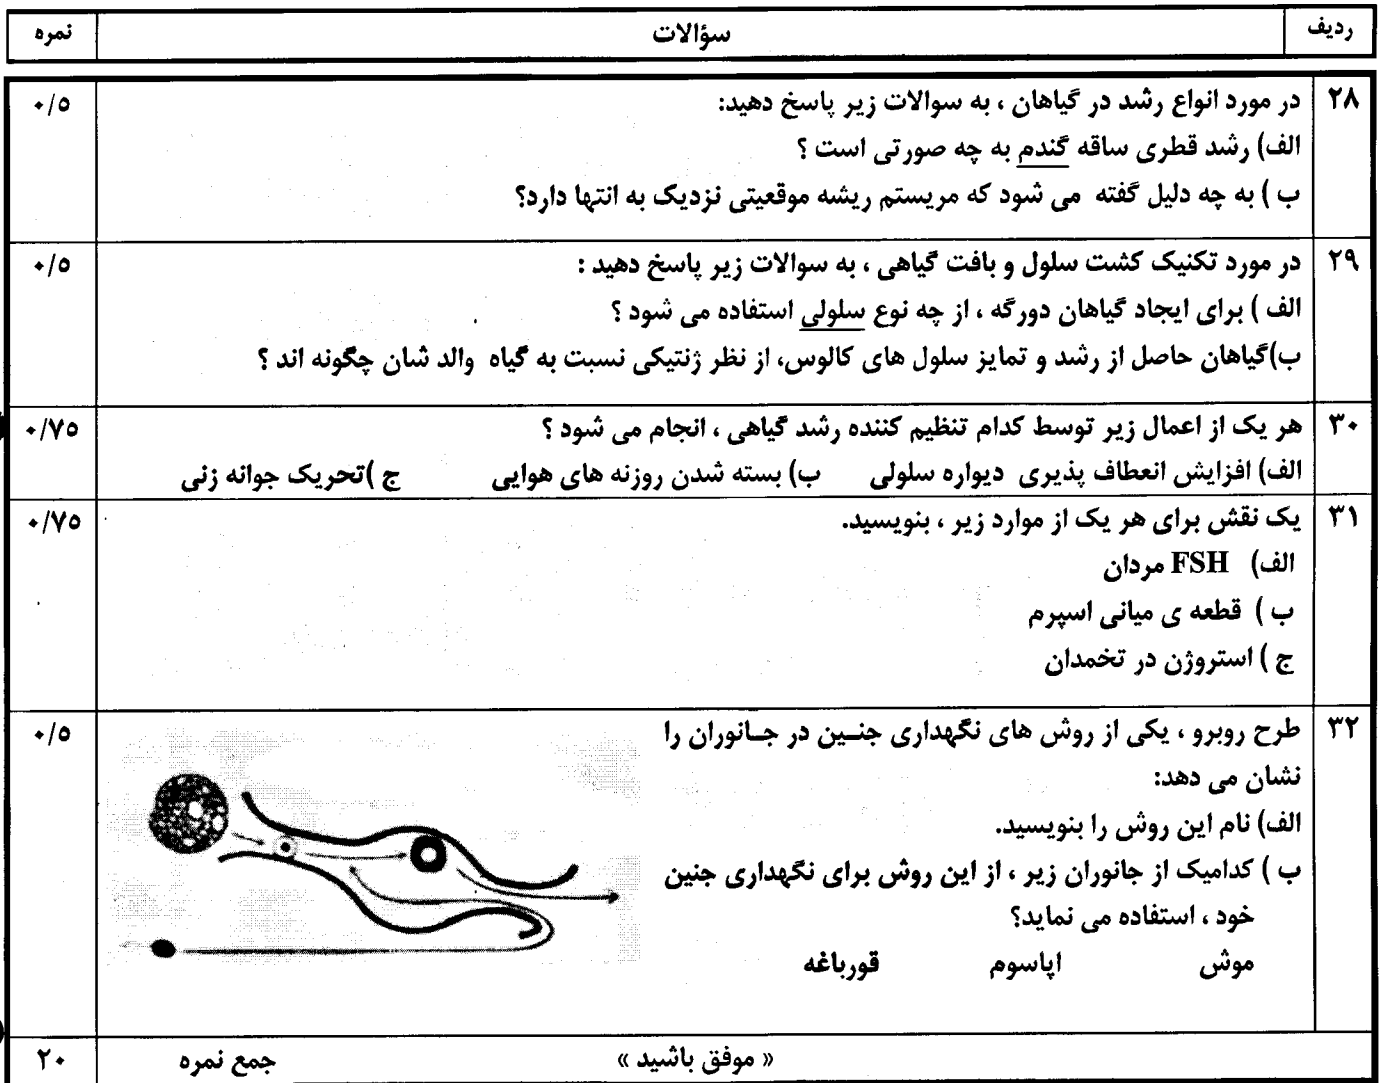 ردیف سؤالات نمره
۲۸ در مورد انواع رشد در گیاهان ، به سوالات زیر پاسخ دهید: ۰/۵
الف) رشد قطری ساقه گندم به چه صورتی است ؟
ب ) به چه دلیل گفته می شود که مریستم ریشه موقعیتی نزدیک به انتها دارد؟
۲۹ در مورد تکنیک کشت سلول و بافت گیاهی ، به سوالات زیر پاسخ دهید : ۰/۵
الف ) برای ایجاد گیاهان دورگه ، از چه نوع سلولی استفاده می شود ؟
ب)گیاهان حاصل از رشد و تمایز سلول های کالوس، از نظر ژنتیکی نسبت به گیاه والد شان چگونه اند ؟
۳۰ هر یک از اعمال زیر توسط کدام تنظیم کننده رشد گیاهی ، انجام می شود ؟ ۰/۷۵
الف) افزایش انعطاف پذیری دیواره سلولی ب) بسته شدن روزنه های هوایی ج )تحریک جوانه زنی
۳۱ یک نقش برای هر یک از موارد زیر ، بنویسید. ۰/۷۵
الف) FSH مردان
ب ) قطعه ی میانی اسپرم
ج ) استروژن در تخمدان
۳۲ طرح روبرو ، یکی از روش های نگهداری جنــین در جــانوران را ۰/۵
نشان می دهد:
الف) نام این روش را بنویسید.
ب ) کدامیک از جانوران زیر ، از این روش برای نگهداری جنین
خود ، استفاده می نماید؟
موش اپاسوم قورباغه
« موفق باشید » جمع نمره ۲۰